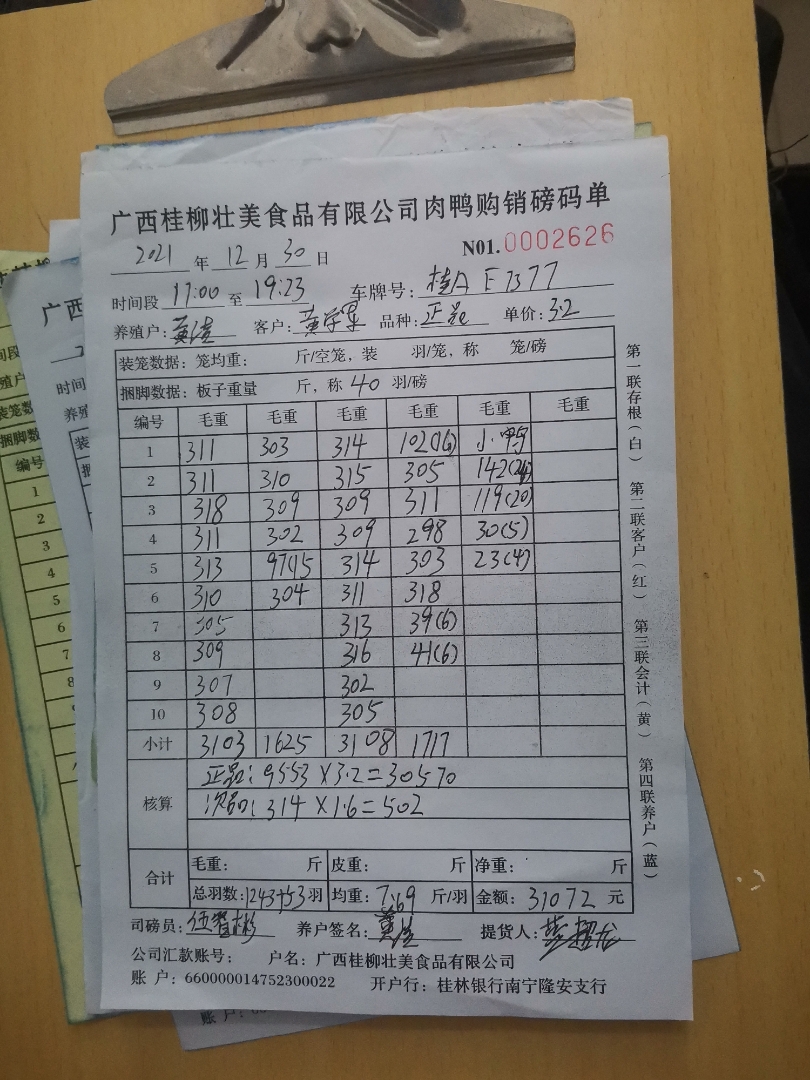 广西桂柳壮美食品有限公司肉鸭购销磅码单
2021 年 12 月 30 日 N01.0002626
时间段 17:00 至 19:23 车牌号：桂A F7377
养殖户：黄 客户：黄 品种：正品 单价：3.2
装笼数据：笼均重： 斤/空笼，装 羽/笼，称 笼/磅
捆脚数据：板子重量 斤，称 40 羽/磅
编号 毛重 毛重 毛重 毛重 毛重 毛重
1 311 303 314 102(16) 小鸭
2 311 310 315 305 142(24)
3 318 309 309 311 119(20)
4 311 302 309 298 30(5)
5 313 97(15 314 303 23(4)
6 310 304 311 318
7 305 313 39(6)
8 309 316 41(6)
9 307 302
10 308 305
小计 3103 1625 3108 1717
核算 正品：9553×3.2=30570
次品：314×1.6=502
合计 毛重： 斤 皮重： 斤 净重： 斤
总羽数：1243+53羽 均重：7.69 斤/羽 金额：31072 元
司磅员：伍智彬 养户签名：黄 提货人：
公司汇款账号： 户名：广西桂柳壮美食品有限公司
账 户：660000014752300022 开户行：桂林银行南宁隆安支行
第一联存根（白） 第二联客户（红） 第三联会计（黄） 第四联养户（蓝）
广西
时间
养殖
编号
1
2
3
4
5
6
7
8
账 户：